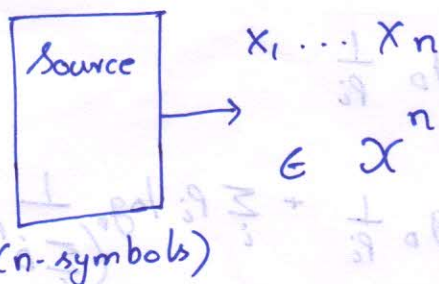 Source
X₁ . . . Xₙ
∈ 𝒳ⁿ
(n-symbols)